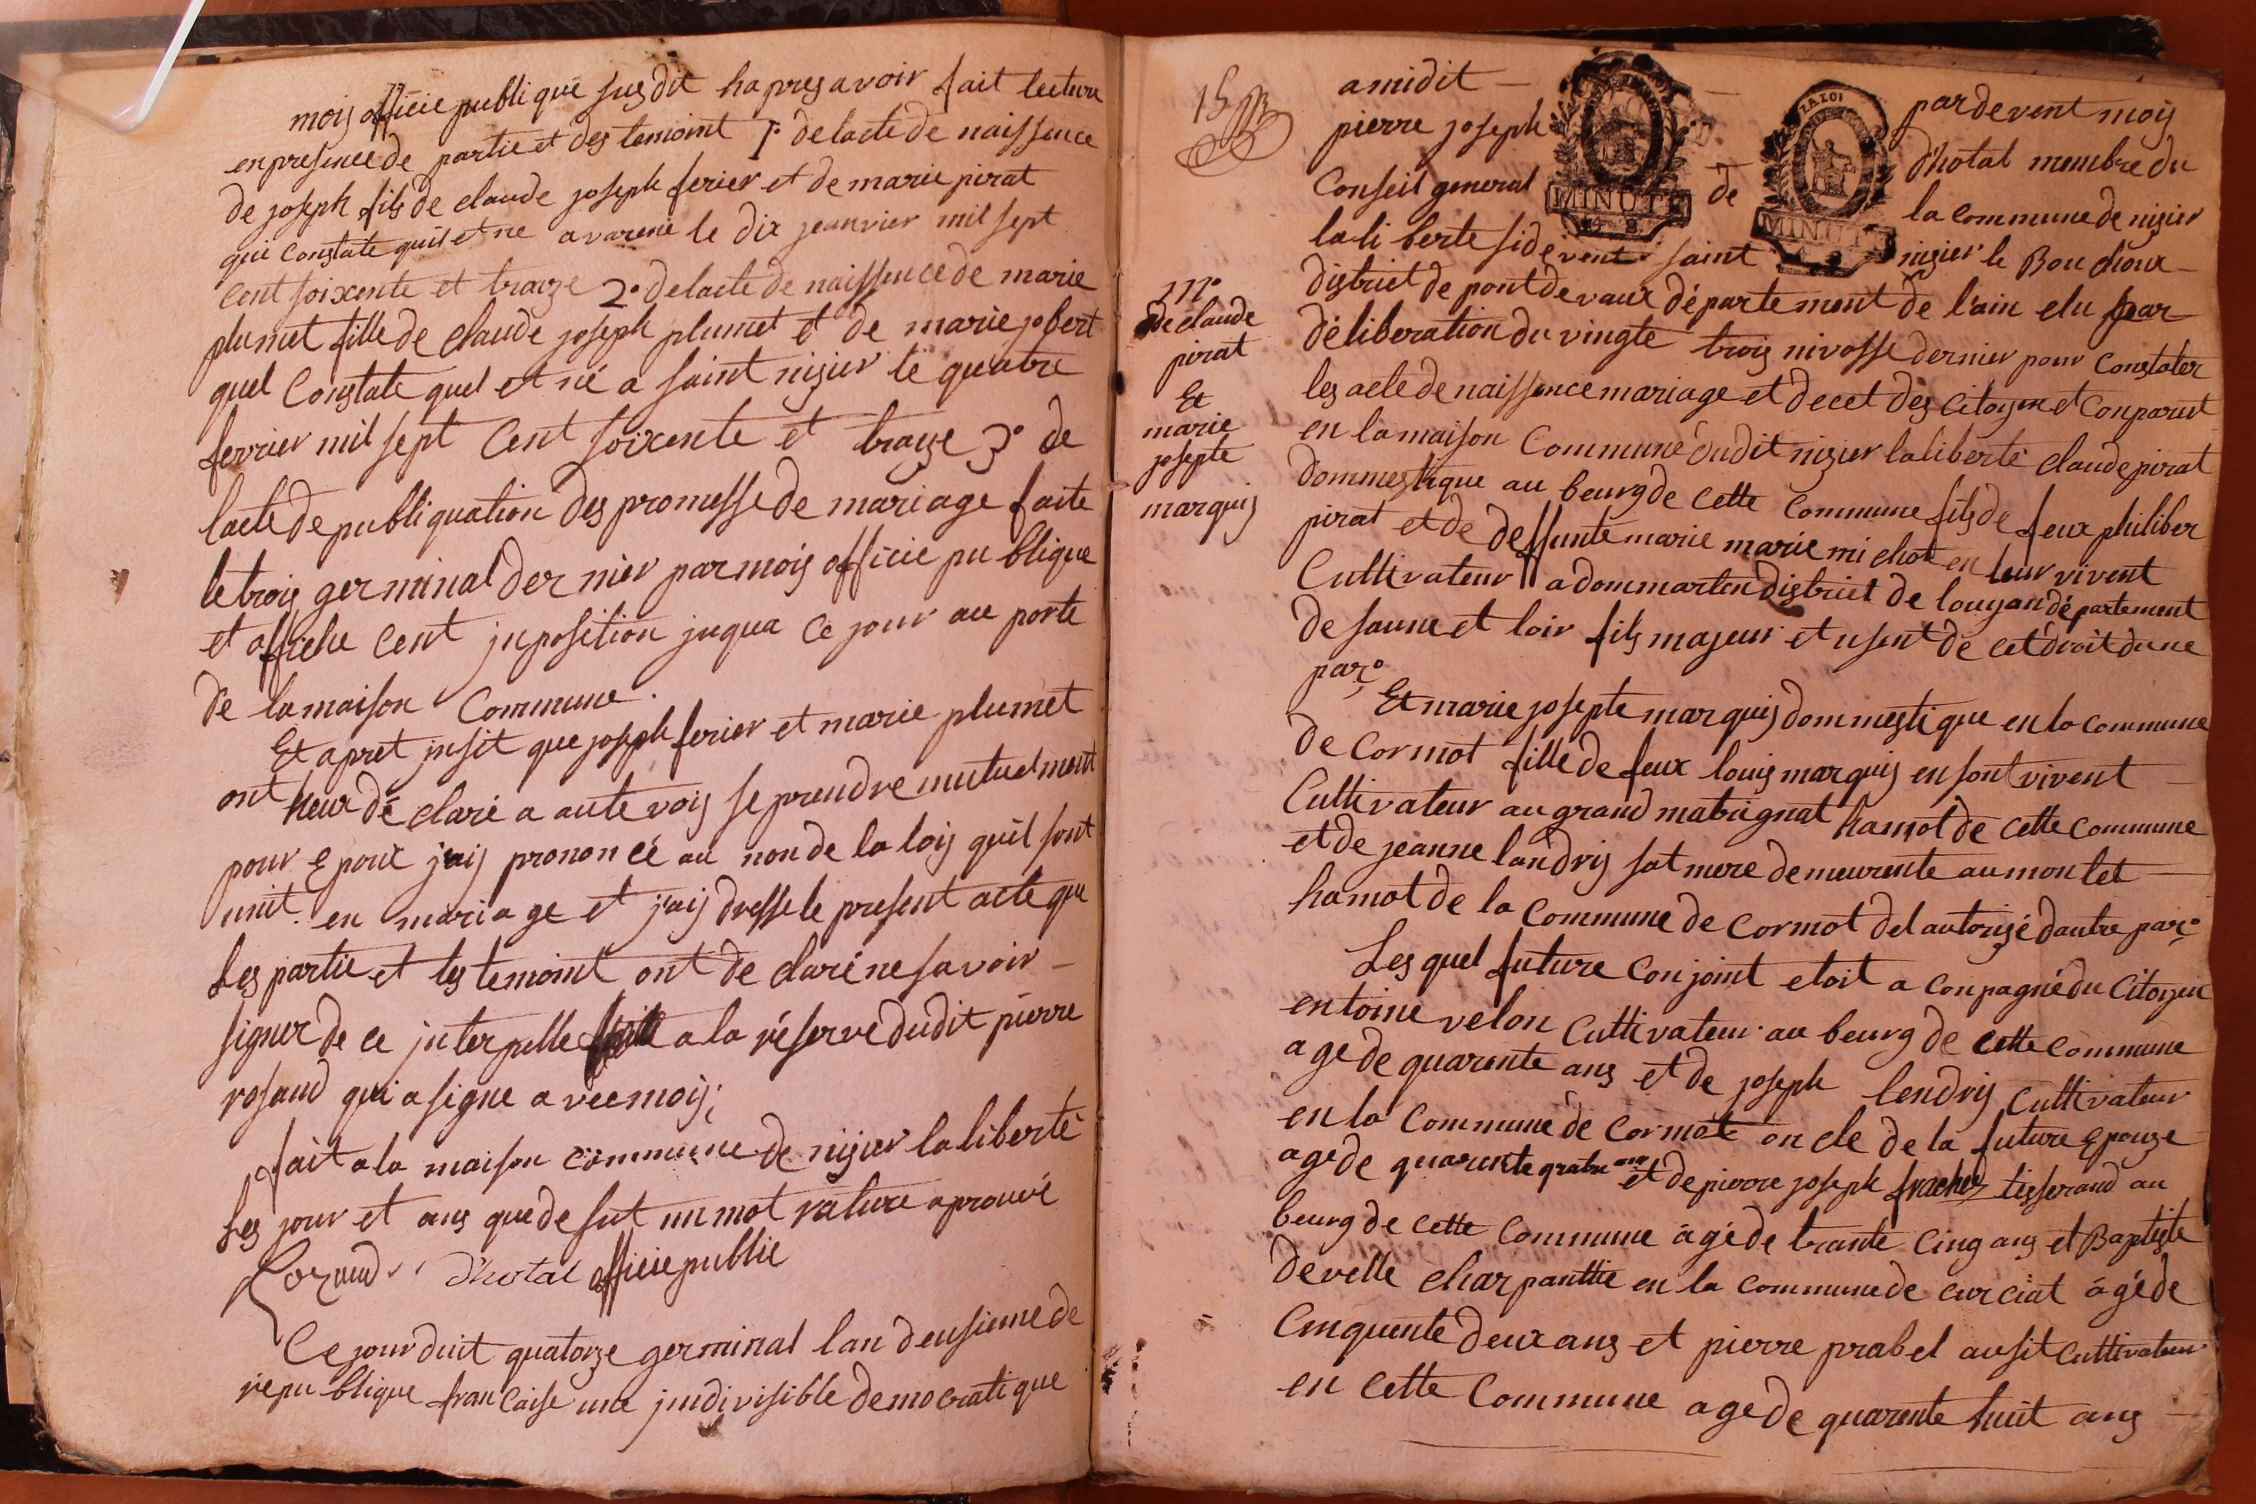 mois officie publique susdit hapres avoir fait lecture
en presence de partie et des temoint 1° de lacte de naissence
de joseph fils de claude joseph ferier et de marie pirat
qui constate quil et ne a varene le dix jeanvier mil sept
cent soixente et traize 2° de lacte de naissence de marie
plumet fille de claude joseph plumet et de marie jobert
quel Constate quel et né a saint nizier le quatre
fevrier mil sept Cent soixente et traize 3° de
lacte de publiquation des promesse de mariage faite
le trois germinal dernier par mois officie publique
et affiche cent juposition juqua ce jour au porte
de la maison Commune.
Et apret jnsit que joseph ferier et marie plumet
ont heux déclaré a aute vois se prendre mutuelment
pour epoux jais prononcé au non de la lois quil sont
unit en mariage et jais dresse le present acte que
les partie et les temoint ont de claré ne savoir
signer de ce jnterpelle a la réserve dudit pierre
rosand qui a signe avec mois;
fait a la maison commune de nizier la liberté
Les jour et ans que de sut un mot rature aprouvé
Rozand d'hotal officie public
Ce jourduit quatorze germinal lan deusieme de
republique francaise une jndivisible democratique
15
amidit pardevent mois
pierre joseph d'hotal membre du
Conseil general de la commune de nizier
la liberte sidevent saint nizier le Bouchoux
MINUTE
MINUTE
district de pont de vaux département de l'ain elu par
déliberation du vingte trois nivosse dernier pour Constater
les acte de naissence mariage et decet des Citoyen et Conparut
en la maison Commune dudit nizier la liberté claude pirat
dommestique au beurg de cette Commune fils de feux philiber
pirat et de deffunte marie marie michot en leur vivent
Cultivateur a dommarten district de louyan département
de saune et loir fils majeur et usent de cet droit dune
par°
111°
de claude
pirat
Et
marie
josepte
marquis
Et marie josepte marquis dommestique en la commune
de Cormot fille de feux louis marquis en sont vivent
Cultivateur au grand mabugnat hamot de cette commune
et de jeanne landris sat mere demeurente au montet
hamot de la Commune de Cormot del autorizé dautre par°
Les quel future Conjoint etoit a Conpagné du Citoyen
entoine velon Cultivateur au beurg de cette commune
age de quarente ans et de joseph lendris Cultivateur
en la Commune de Cormote oncle de la future epouze
age de quarente quatre ans et de pierre joseph frachet tisserand au
beurg de cette Commune âgé de trante Cinq ans et Baptiste
develle charpanttie en la commune de curciat âgé de
Cinquente deux ans et pierre prabel ausit Cultivateur
en cette Commune age de quarente huit ans